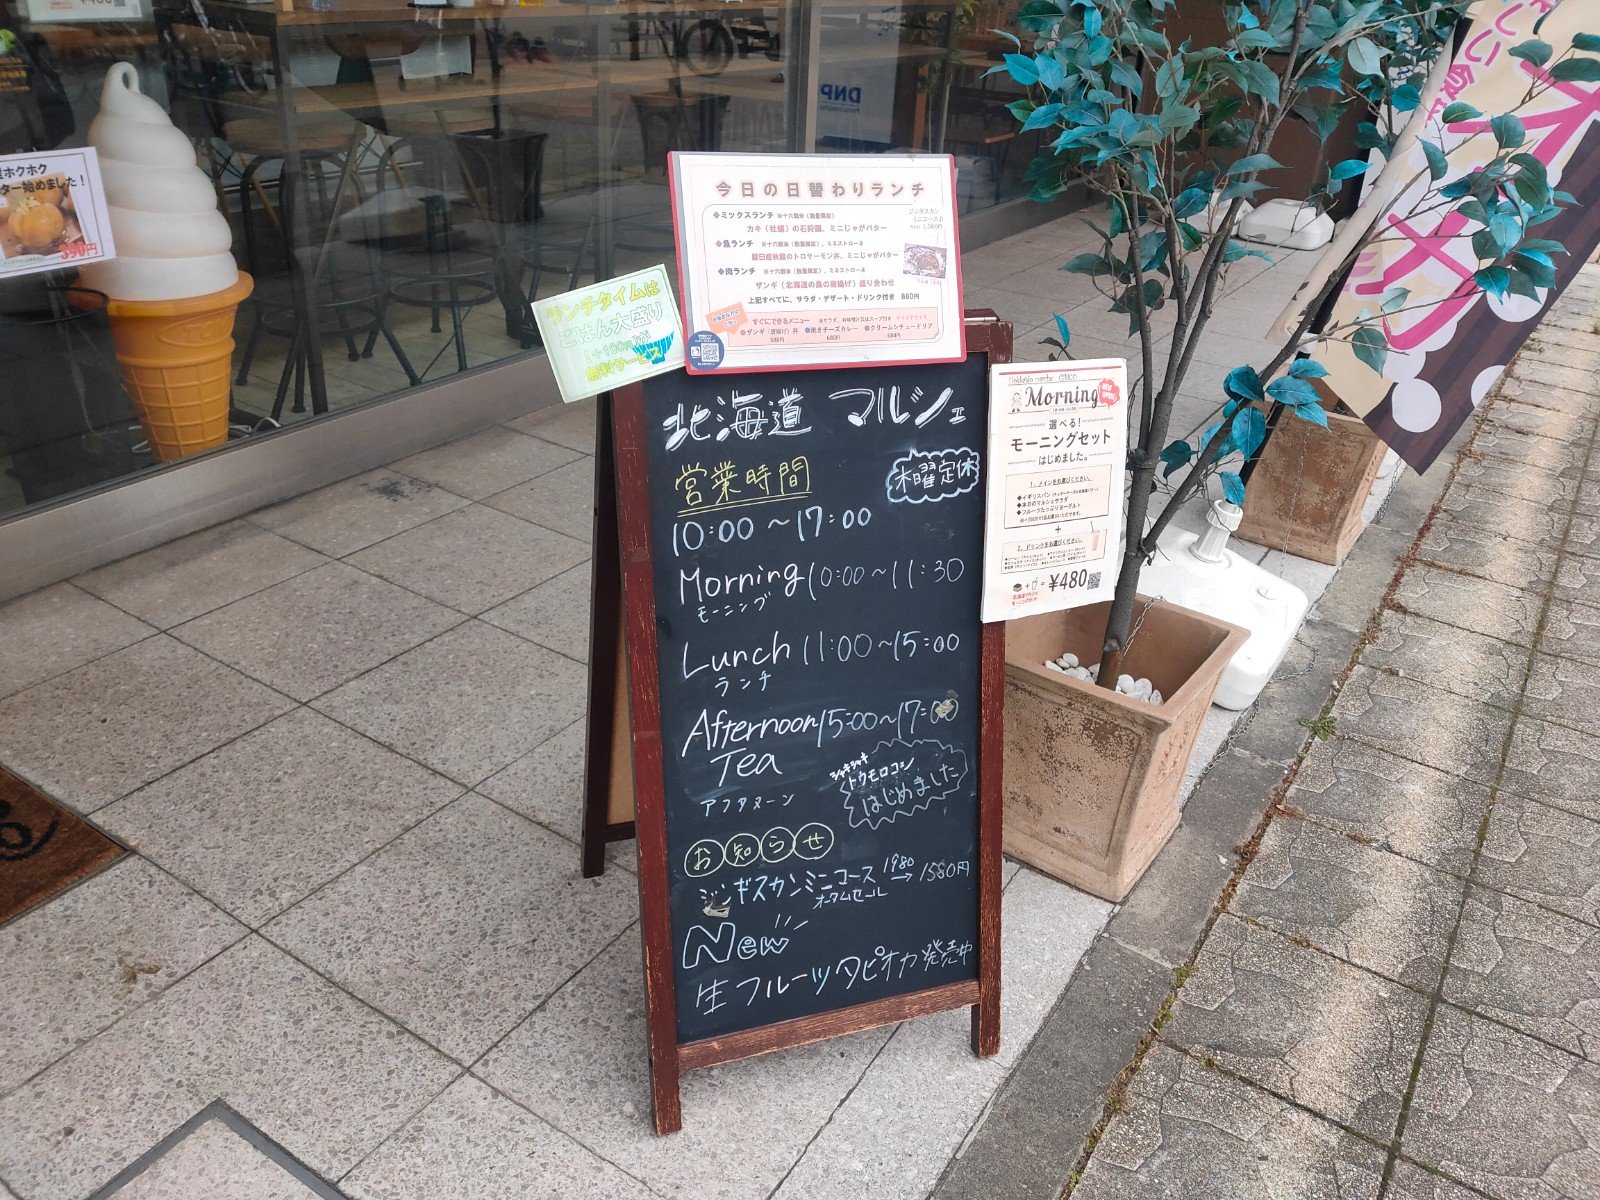 ホクホク
ター始めました!
390円
DNP
今日の日替わりランチ
◆ミックスランチ ※十六穀米(数量限定)
カキ(牡蠣)の石狩鍋、ミニじゃがバター
◆魚ランチ ※十六穀米(数量限定)、ミネストローネ
釧路産秋鮭のトロサーモン丼、ミニじゃがバター
◆肉ランチ ※十六穀米(数量限定)、ミネストローネ
ザンギ(北海道の鳥の唐揚げ)盛り合わせ
上記すべてに、サラダ・デザート・ドリンク付き 880円
ジンギスカン
ミニコース♪
1,580円
すぐにできるメニュー
ザンギ(唐揚げ)丼 焼きチーズカレー クリームシチュードリア
580円 680円 880円
ランチタイムは
ごはん大盛り
(+100円)が
無料サービス
北海道 マルシェ
営業時間
木曜定休
10:00~17:00
Morning 10:00~11:30
モーニング
Lunch 11:00~15:00
ランチ
Afternoon 15:00~17:00
Tea
アフタヌーン
シャキシャキ
トウモロコシ
はじめました
お知らせ
ジンギスカンミニコース 1980 → 1580円
オータムセール
New
生フルーツタピオカ発売中
Hokkaido marche
Morning
NEW OPEN!
選べる!
モーニングセット
はじめました。
1. メインをお選びください。
◆イギリスパン
◆本日のマルシェサラダ
◆フルーツたっぷりヨーグルト
+
2. ドリンクをお選びください。
+ = ¥480
北海道マルシェ
モーニングセット